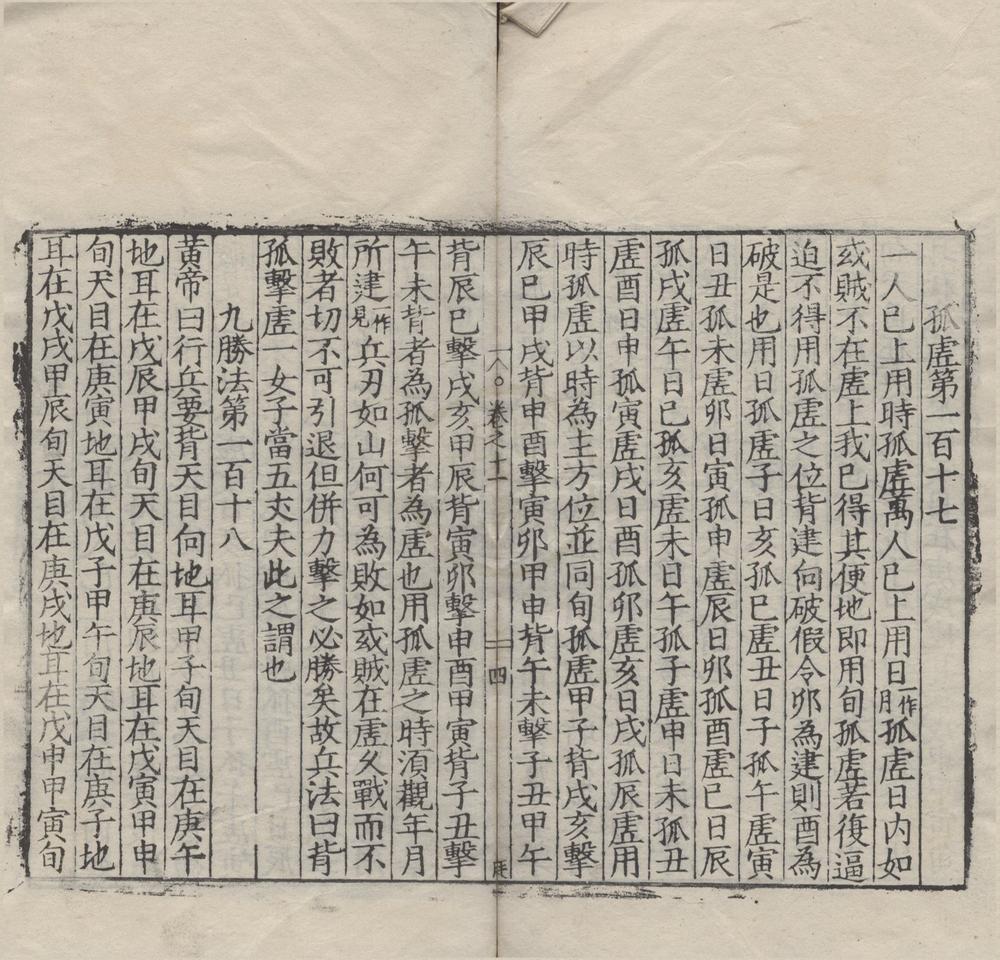 孤虛第一百十七
一人已上用時孤虛萬人已上用日一作月孤虛日内如
或賊不在虛上我已得其便地即用旬孤虛若復逼
迫不得用孤虛之位背建向破假令卯為建則酉為
破是也用日孤虛子日亥孤巳虛丑日子孤午虛寅
日丑孤未虛卯日寅孤申虛辰日卯孤酉虛巳日辰
孤戌虛午日巳孤亥虛未日午孤子虛申日未孤丑
虛酉日申孤寅虛戌日酉孤卯虛亥日戌孤辰虛用
時孤虛以時為主方位並同旬孤虛甲子背戌亥擊
辰巳甲戌背申酉擊寅卯甲申背午未擊子丑甲午
卷之十一
四
背辰巳擊戌亥甲辰背寅卯擊申酉甲寅背子丑擊
午未背者為孤擊者為虛也用孤虛之時須觀年月
所建作見兵刃如山何可為敗如或賊在虛久戰而不
敗者切不可引退但併力擊之必勝矣故兵法曰背
孤擊虛一女子當五丈夫此之謂也
九勝法第一百十八
黃帝曰行兵要背天目向地耳甲子旬天目在庚午
地耳在戊辰甲戌旬天目在庚辰地耳在戊寅甲申
旬天目在庚寅地耳在戊子甲午旬天目在庚子地
耳在戊戌甲辰旬天目在庚戌地耳在戊申甲寅旬